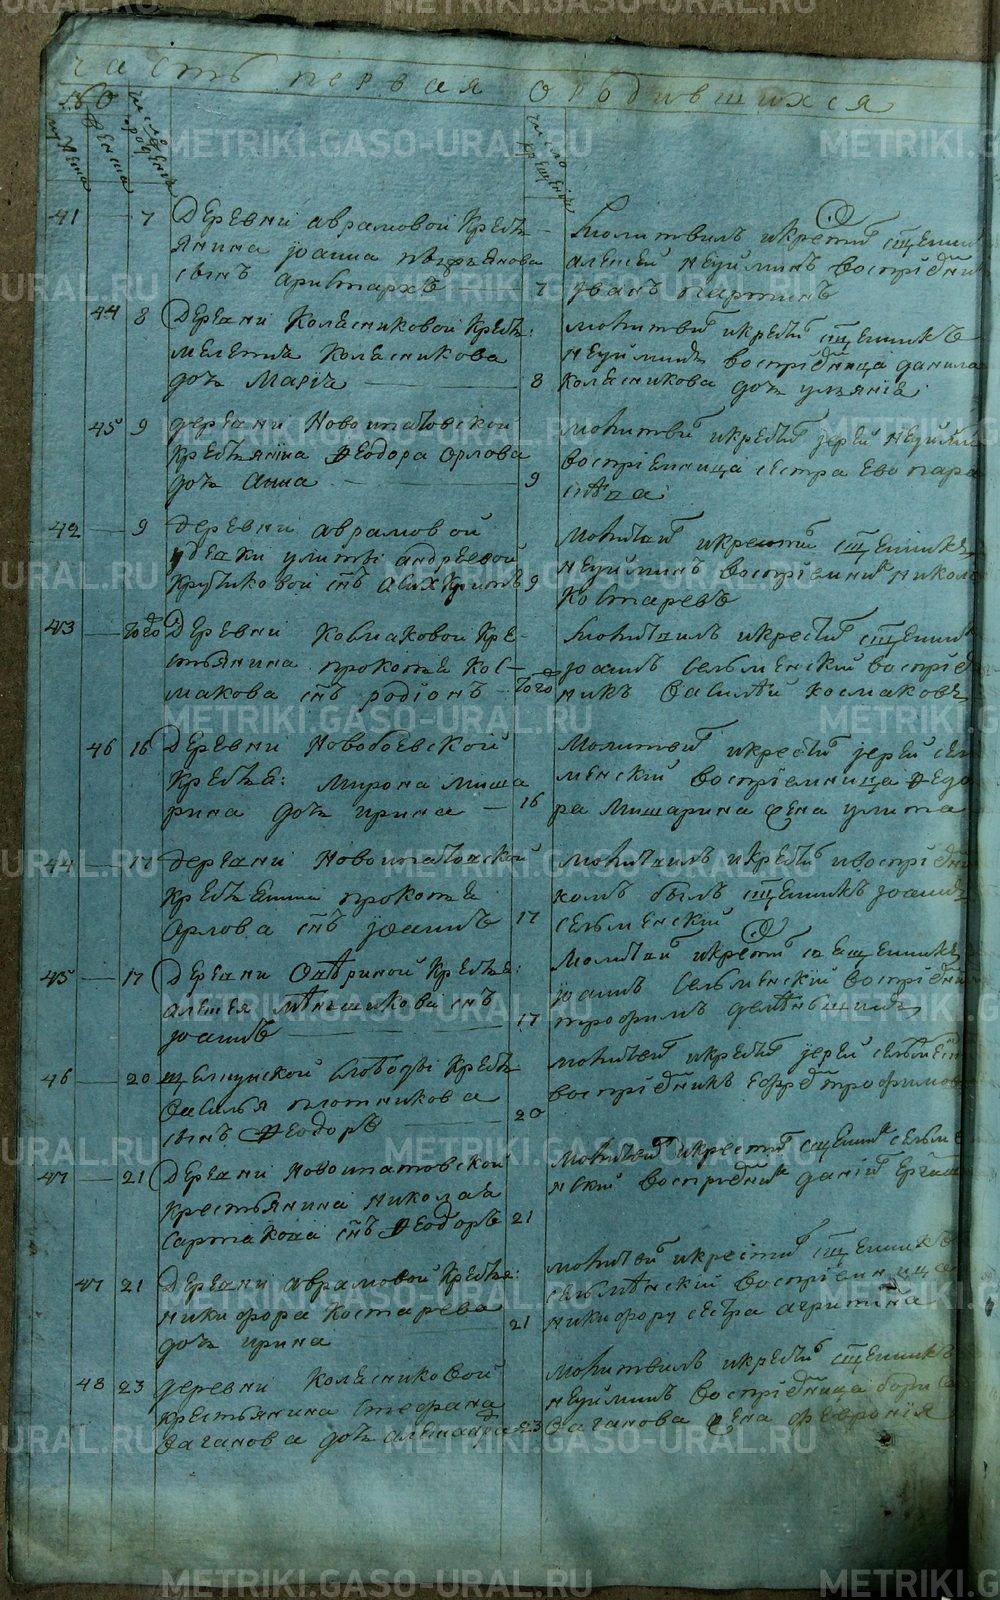 часть первая о родившихся
число
41 7 Деревни аврамовой Кресть
янина Iоанна
сынъ аристархъ
Молитвилъ и крестил сщенник
алексей неуйминъ воспріемни
7 Iванъ партинъ
44 8 Деревни Колясниковой Кресть:
мелетия Колясникова
дочь Марiя
молитвил и крестил сщенникъ
неуйминъ воспріемница данила
8 Колясникова дочь улияния
45 9 деревни Новоипатовской
крестьянина Ѳеодора орлова
дочь Анна
молитвил и крестил iерей неуймин
воспріемница сестра ево пара
9 скева
42 9 деревни аврамовой
у девки улиты андреевой
крутиковой снъ
молитвил и крестил сщенникъ
неуйминъ воспріемник никола
9 Костаревъ
43 того Деревни Космаковой Кре-
стьянина прокопья Кос-
макова снъ родионъ
молитвилъ и крестил сщенник
Iоаннъ Сельменский воспріем
того никъ Василей космаковъ
46 16 Деревни Новобоевской
Крестья: мирона миша
рина дочь ирина
молитвил и крестил iерей сел
менский воспріемница Ѳедо
16 ра Мишарина жена улита
44 17 деревни Новоипатовской
крестьянина прокопья
Орлова снъ Iоаннъ
молитвилъ и крестил и воспріемни
комъ былъ сщенникъ Iоаннъ
17 сельменский
45 17 Деревни Крестья:
алексея меньшикова снъ
Iоаннъ
молитвил и крестил священникъ
Iоаннъ Сельменский воспріемни
17 трофимъ
46 20 щелкунской слободы Кресть
Василья плотникова
сынъ Ѳеодоръ
молитвил и крестил iерей сельмен
воспріемникъ трофимов
20
47 21 Деревни Новоипатовской
крестьянина Николая
снъ Ѳеодоръ
молитвил и крестил сщенник сельме
нский воспріемник данил
21
47 21 Деревни аврамовой Крестья:
никифора костарева
дочь ирина
молитвил и крестил сщенникъ
сельменский воспріемница
21 никифору сестра агрипина
48 23 деревни колясниковой
крестьянина Стефана
Ваганова дочь александра
молитвилъ и крестил сщенникъ
неуйминъ воспріемница бориса
23 Ваганова жена феврония
METRIKI.GASO-URAL.RU